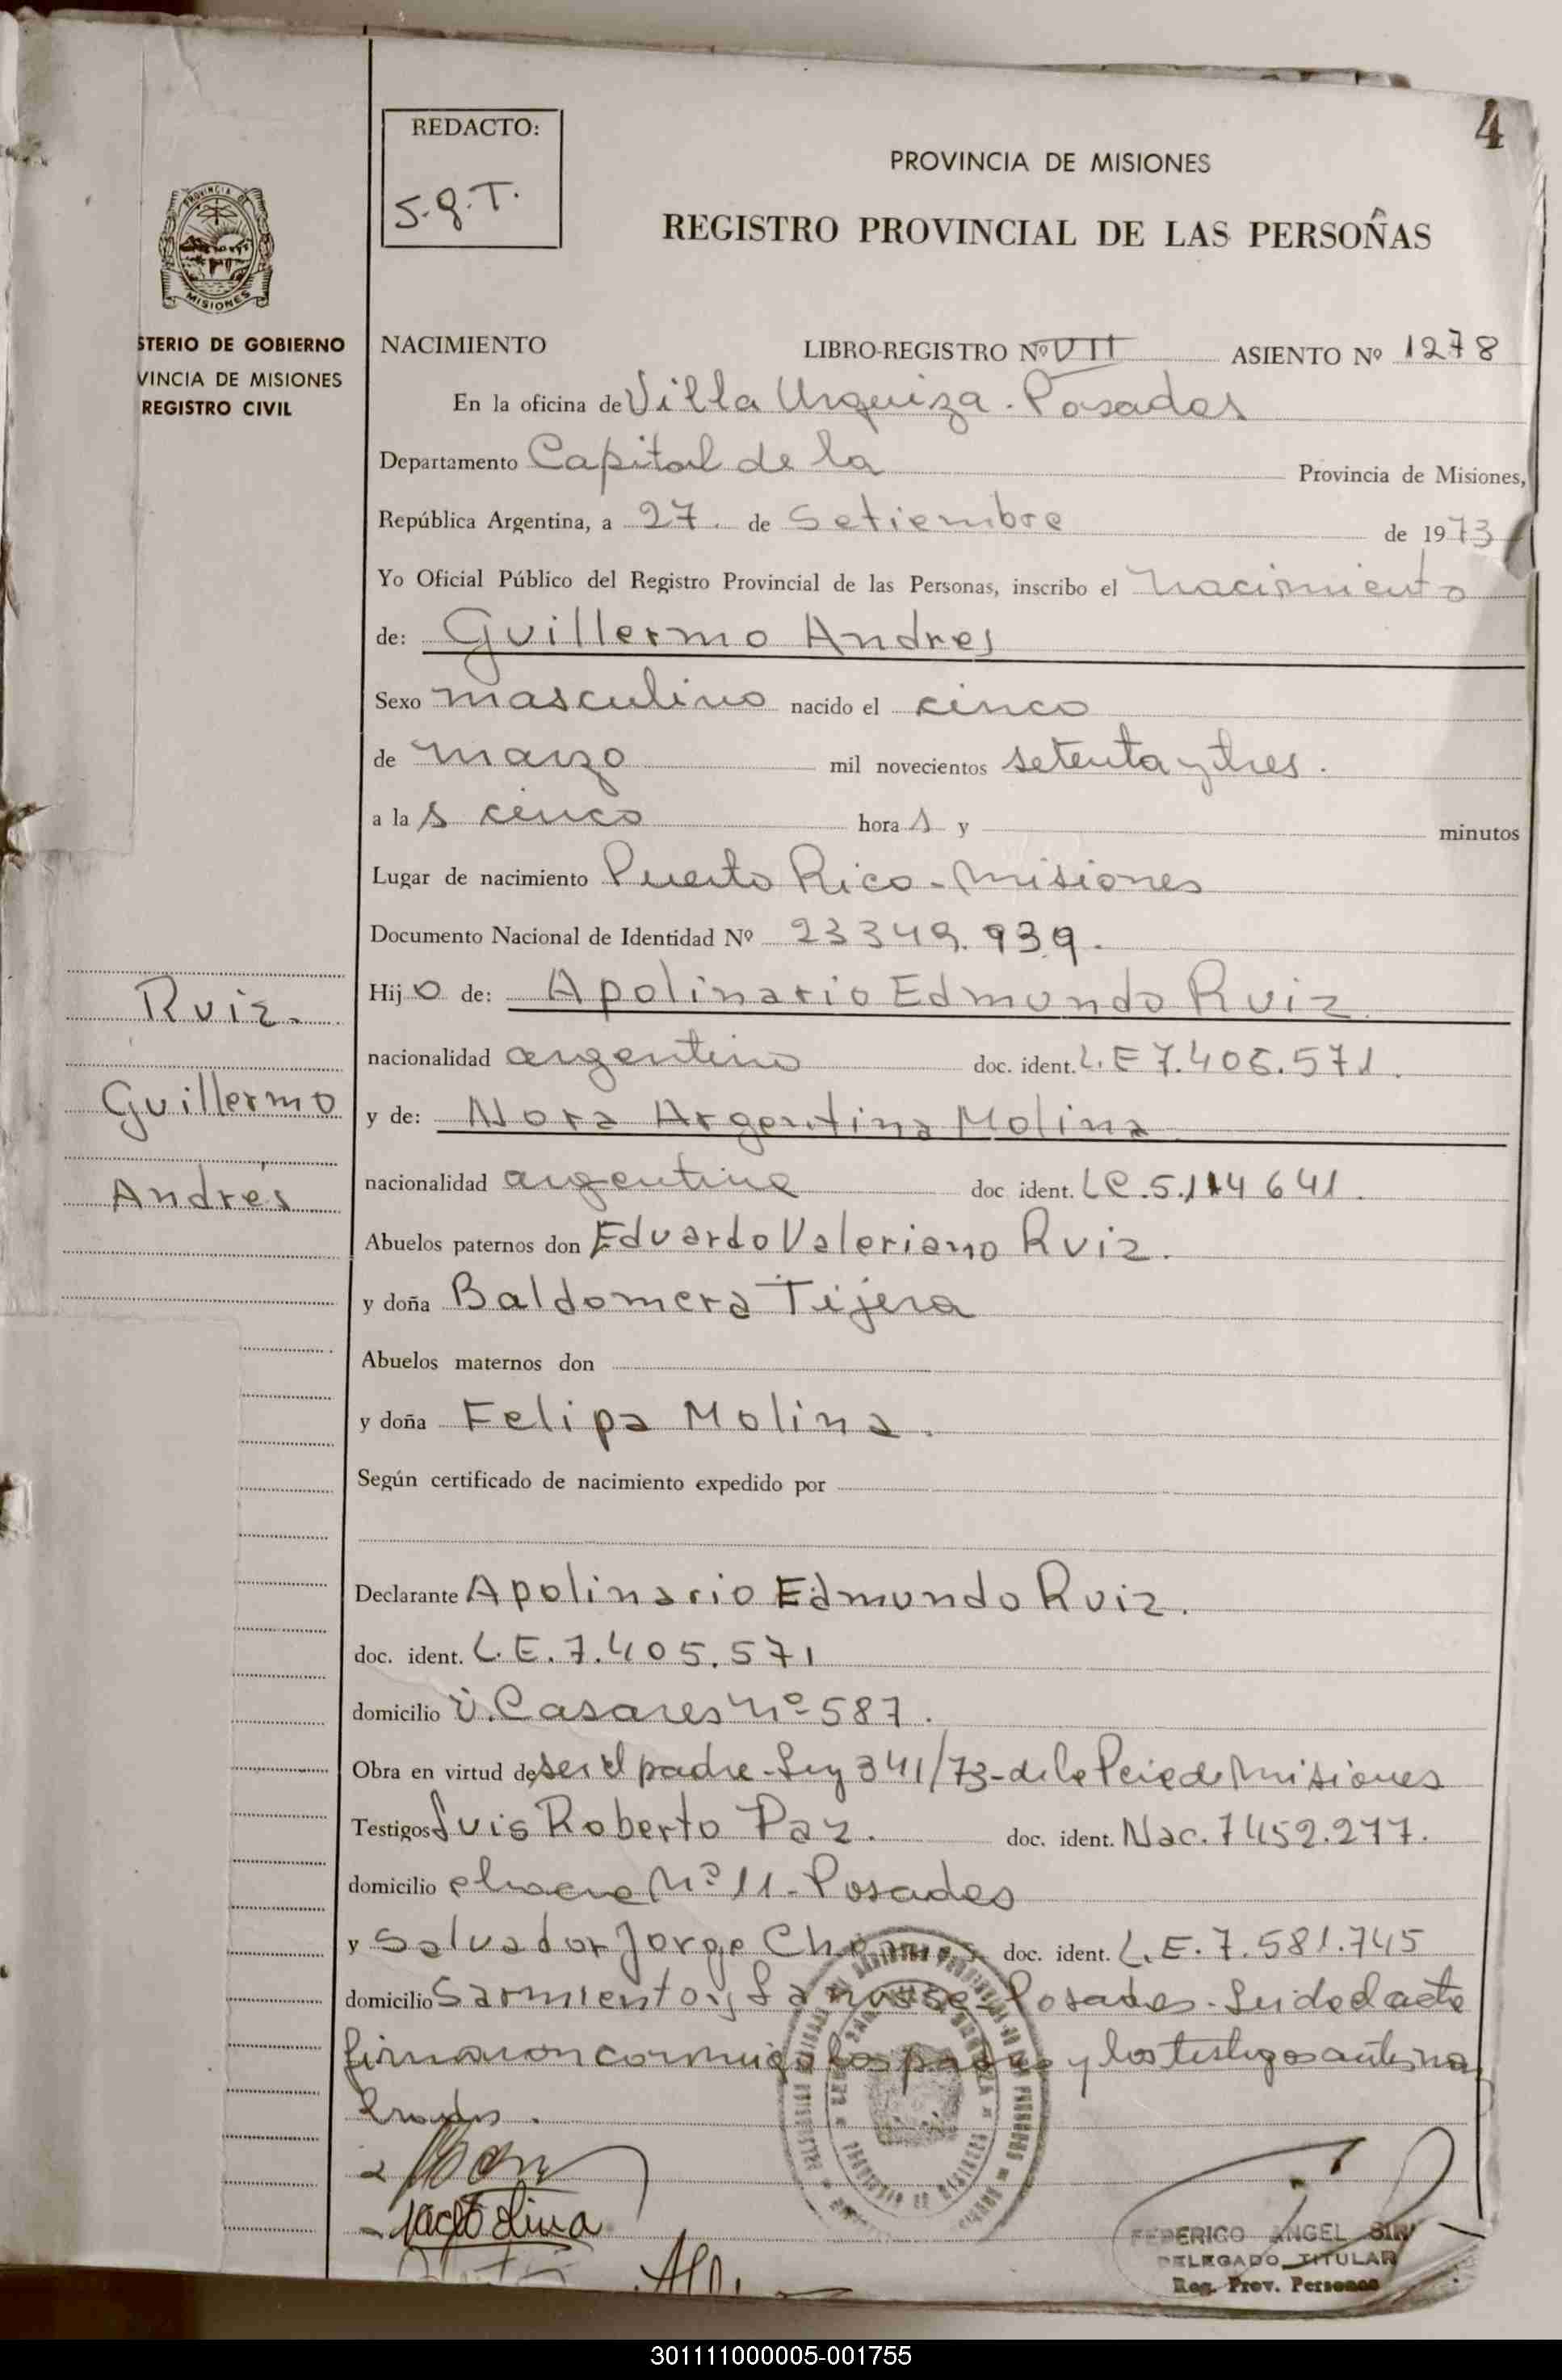 4
REDACTO:
S.G.T.
PROVINCIA DE MISIONES
REGISTRO PROVINCIAL DE LAS PERSONAS
MISIONES
STERIO DE GOBIERNO
VINCIA DE MISIONES
REGISTRO CIVIL
NACIMIENTO LIBRO-REGISTRO Nº VII ASIENTO Nº 1278
En la oficina de Villa Urquiza - Posadas
Departamento Capital de la Provincia de Misiones,
República Argentina, a 27. de Setiembre de 1973
Yo Oficial Público del Registro Provincial de las Personas, inscribo el nacimiento
de: Guillermo Andres
Sexo masculino nacido el cinco
de marzo mil novecientos setenta y tres.
a las cinco horas y minutos
Lugar de nacimiento Puerto Rico - Misiones
Documento Nacional de Identidad Nº 23349.939.
Hijo de: Apolinario Edmundo Ruiz
nacionalidad argentino doc. ident. L.E 7.405.571.
y de: Nora Argentina Molina
nacionalidad argentina doc ident. LC.5.114641.
Abuelos paternos don Eduardo Valeriano Ruiz.
y doña Baldomera Tijera
Abuelos maternos don
y doña Felipa Molina.
Ruiz.
Guillermo
Andrés
Según certificado de nacimiento expedido por
Declarante Apolinario Edmundo Ruiz.
doc. ident. L.E.7.405.571
domicilio V. Casares nº 587.
Obra en virtud de ser el padre - Ley 341/73 - de la Pcia de Misiones
Testigos Luis Roberto Paz. doc. ident. Nac. 7452.277.
domicilio Nº 11 - Posadas
y Salvador Jorge doc. ident. L.E. 7.581.745
domicilio Sarmiento y Lanusse - Posadas - Leida el acta
firmaron conmigo los padres y los testigos antesnom
brados.
FEDERICO ANGEL
DELEGADO TITULAR
Reg. Prov. Personas
301111000005-001755